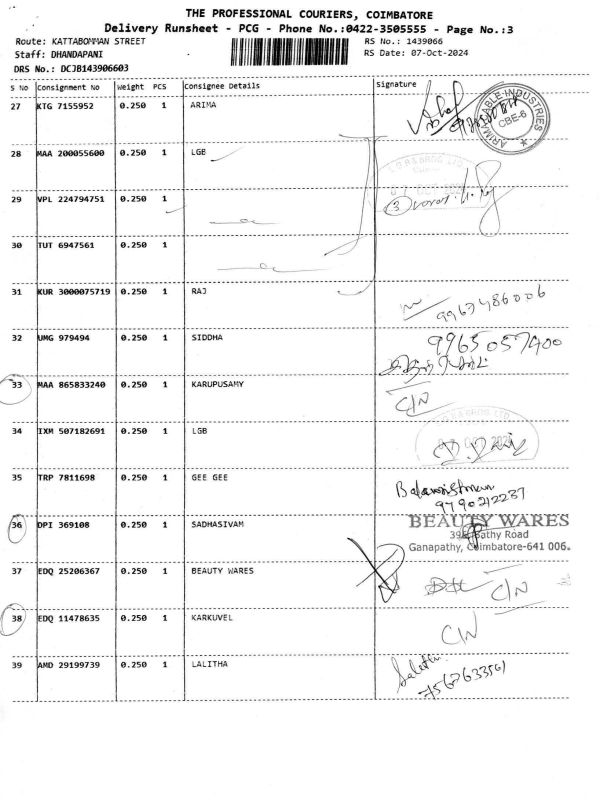 THE PROFESSIONAL COURIERS, COIMBATORE
Delivery Runsheet - PCG - Phone No.:0422-3505555 - Page No.:3
Route: KATTABOMMAN STREET RS No.: 1439066
Staff: DHANDAPANI RS Date: 07-Oct-2024
DRS No.: DCJB143906603
S No Consignment No Weight PCS Consignee Details Signature
27 KTG 7155952 0.250 1 ARIMA
CBE-6
28 MAA 200055600 0.250 1 LGB
29 VPL 224794751 0.250 1
30 TUT 6947561 0.250 1
31 KUR 3000075719 0.250 1 RAJ
9963486006
32 UMG 979494 0.250 1 SIDDHA
9965057400
33 MAA 865833240 0.250 1 KARUPUSAMY
C/N
34 IXM 507182691 0.250 1 LGB
35 TRP 7811698 0.250 1 GEE GEE
9790212237
36 DPI 369108 0.250 1 SADHASIVAM
BEAUTY WARES
Sathy Road
Ganapathy, Coimbatore-641 006.
37 EDQ 25206367 0.250 1 BEAUTY WARES
C/N
38 EDQ 11478635 0.250 1 KARKUVEL
C/N
39 AMD 29199739 0.250 1 LALITHA